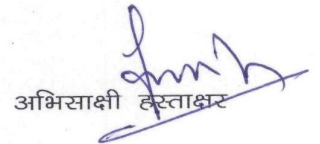 अभिसाक्षी हस्ताक्षर